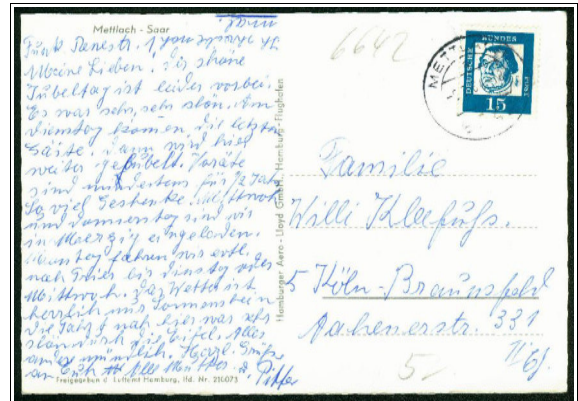 Mettlach - Saar
Meine Lieben! Der schöne
Jubeltag ist leider vorbei.
Es war sehr, sehr schön. Am
Dienstag kommen die letzten
Gäste. Dann wird hier
weiter gejubelt. Vorräte
sind mindestens für 1/2 Jahr
So viel Geschenke. Mittwoch
und Donnerstag sind wir
in Merzig eingeladen.
Montag fahren wir evtl.
nach Trier bis Dienstag oder
Mittwoch. Das Wetter ist
herrlich nur Sonnenschein
die Fahrt nach hier war sehr
schön durch die Eifel. Alles
andere mündlich. Herzl. Grüße
an Euch Alle Mutter u.
Freigegeben d. Luftamt Hamburg, lfd. Nr. 216073
Hamburger Aero-Lloyd GmbH., Hamburg-Flughafen
6642
METTL
DEUTSCHE BUNDES
15
Familie
Willi Kleefuß.
5 Köln-Braunsfeld
Aachenerstr. 331